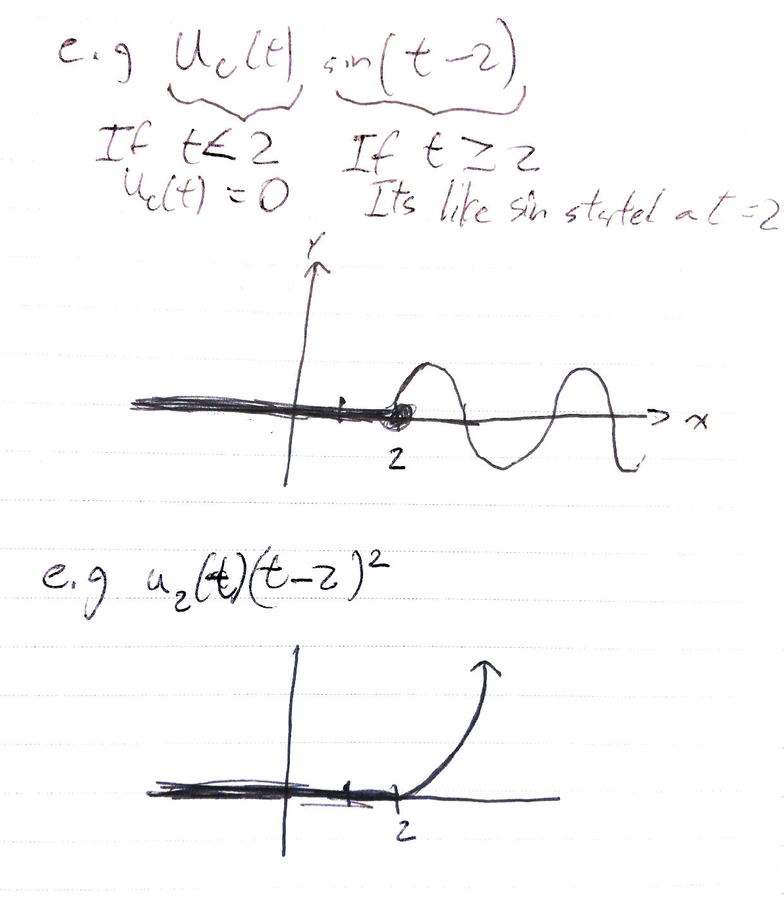 e.g U_c(t) sin(t-2)
If t≤2 If t≥2
U_c(t) = 0 Its like sin started at=2
Y
x
2
e.g u_2(t)(t-2)^2
2